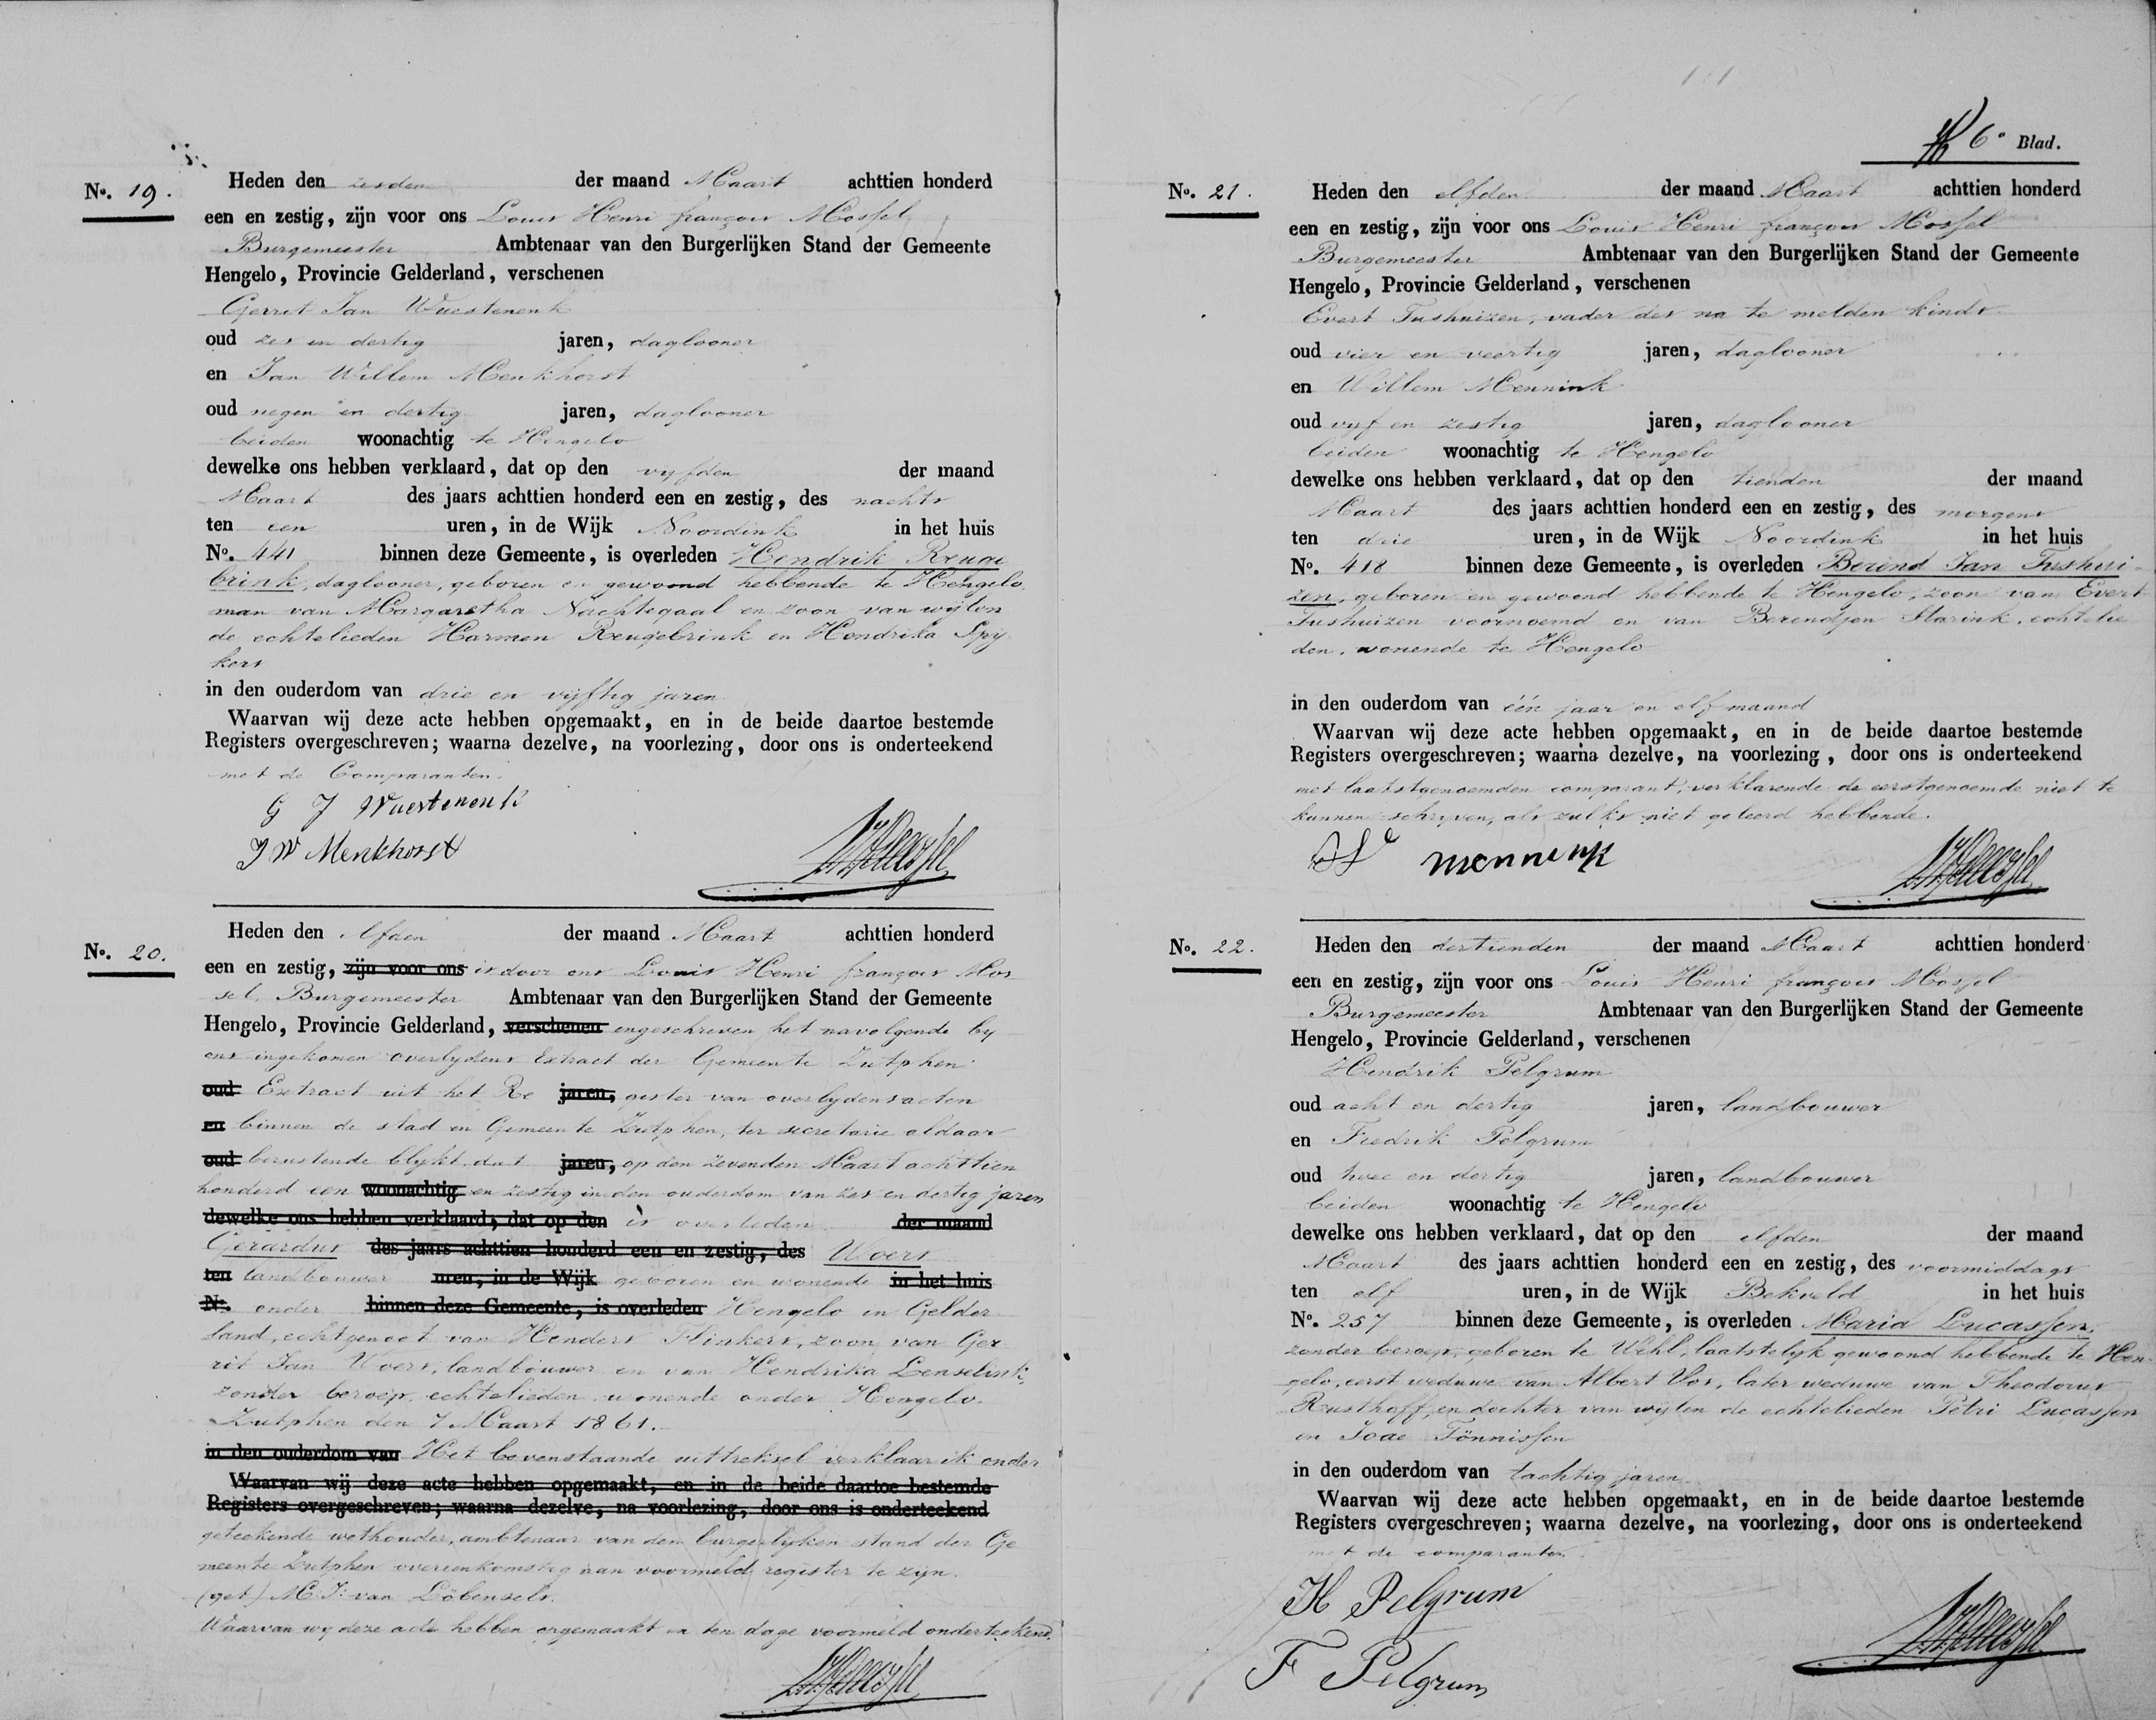 No. 19.
Heden den zesden der maand Maart achttien honderd
een en zestig, zijn voor ons Louis Henri françois Mossel
Burgemeester Ambtenaar van den Burgerlijken Stand der Gemeente
Hengelo, Provincie Gelderland, verschenen
Gerrit Jan Wuestenenk
oud zes en dertig jaren, daglooner
en Jan Willem Menkhorst
oud negen en dertig jaren, daglooner
beiden woonachtig te Hengelo
dewelke ons hebben verklaard, dat op den vijfden der maand
Maart des jaars achttien honderd een en zestig, des nachts
ten een uren, in de Wijk Noordink in het huis
No. 441 binnen deze Gemeente, is overleden Hendrik Reuge
brink, daglooner, geboren en gewoond hebbende te Hengelo,
man van Margaretha Nachtegaal en zoon van wijlen
de echtelieden Harmen Reugebrink en Hendrika Spij
kers
in den ouderdom van drie en vijftig jaren.
Waarvan wij deze acte hebben opgemaakt, en in de beide daartoe bestemde
Registers overgeschreven; waarna dezelve, na voorlezing, door ons is onderteekend
met de Comparanten.
G J Wuestenenk
J W Menkhorst
No. 20.
Heden den elfden der maand Maart achttien honderd
een en zestig, zijn voor ons is door ons Louis Henri françois Mos
sel, Burgemeester Ambtenaar van den Burgerlijken Stand der Gemeente
Hengelo, Provincie Gelderland, verschenen ingeschreven het navolgende by
ons ingekomen overlydens Extract der Gemeente Zutphen
oud Extract uit het Re jaren, gister van overlydensacten
en binnen de stad en Gemeente Zutphen, ter secretarie aldaar
oud berustende blykt dat jaren, op den zevenden Maart achttien
honderd een woonachtig en zestig in den ouderdom van zes en dertig jaren
dewelke ons hebben verklaard, dat op den is overleden der maand
Gerardus des jaars achttien honderd een en zestig, des Woers
ten landbouwer uren, in de Wijk geboren en wonende in het huis
No. onder binnen deze Gemeente, is overleden Hengelo in Gelder
land, echtgenoot van Henders Flinkers, zoon van Ger
rit Jan Woers, landbouwer en van Hendrika Lenselink,
zonder beroep, echtelieden wonende onder Hengelo.
Zutphen den 7 Maart 1861.
in den ouderdom van Het bovenstaande uittreksel verklaar ik onder
Waarvan wij deze acte hebben opgemaakt, en in de beide daartoe bestemde
Registers overgeschreven; waarna dezelve, na voorlezing, door ons is onderteekend
geteekende wethouder, ambtenaar van den burgerlyken stand der Ge
meente Zutphen overeenkomstig aan voormeld register te zyn.
(get) M. J. van Löbensels.
Waarvan wy deze acte hebben opgemaakt en ten dage voormeld onderteekend.
6e Blad.
No. 21.
Heden den elfden der maand Maart achttien honderd
een en zestig, zijn voor ons Louis Henri françois Mossel
Burgemeester Ambtenaar van den Burgerlijken Stand der Gemeente
Hengelo, Provincie Gelderland, verschenen
Evert Tushuizen, vader des na te melden kinds
oud vier en veertig jaren, daglooner
en Willem Mennink
oud vyf en zestig jaren, daglooner
beiden woonachtig te Hengelo
dewelke ons hebben verklaard, dat op den tienden der maand
Maart des jaars achttien honderd een en zestig, des morgens
ten drie uren, in de Wijk Noordink in het huis
No. 418 binnen deze Gemeente, is overleden Berend Jan Tushui-
zen, geboren en gewoond hebbende te Hengelo, zoon van Evert
Tushuizen voornoemd en van Berendjen Starink, echtelie
den, wonende te Hengelo
in den ouderdom van één jaar en elf maand
Waarvan wij deze acte hebben opgemaakt, en in de beide daartoe bestemde
Registers overgeschreven; waarna dezelve, na voorlezing, door ons is onderteekend
met laatstgenoemden comparant, verklarende de eerstgenoemde niet te
kunnen schryven, als zulks niet geleerd hebbende.
W mennink
No. 22.
Heden den dertienden der maand Maart achttien honderd
een en zestig, zijn voor ons Louis Henri françois Mossel
Burgemeester Ambtenaar van den Burgerlijken Stand der Gemeente
Hengelo, Provincie Gelderland, verschenen
Hendrik Pelgrum
oud acht en dertig jaren, landbouwer
en Fredrik Pelgrum
oud twee en dertig jaren, landbouwer
beiden woonachtig te Hengelo
dewelke ons hebben verklaard, dat op den elfden der maand
Maart des jaars achttien honderd een en zestig, des voormiddags
ten elf uren, in de Wijk Bekveld in het huis
No. 257 binnen deze Gemeente, is overleden Maria Lucassen,
zonder beroep, geboren te Wehl, laatstelyk gewoond hebbende te Hen-
gelo, eerst weduwe van Albert Vos, later weduwe van Theodorus
Rusthoff, en dochter van wylen de echtelieden Petri Lucassen
en Joae Tönnissen
in den ouderdom van tachtig jaren.
Waarvan wij deze acte hebben opgemaakt, en in de beide daartoe bestemde
Registers overgeschreven; waarna dezelve, na voorlezing, door ons is onderteekend
met de comparanten.
H Pelgrum
F Pelgrum